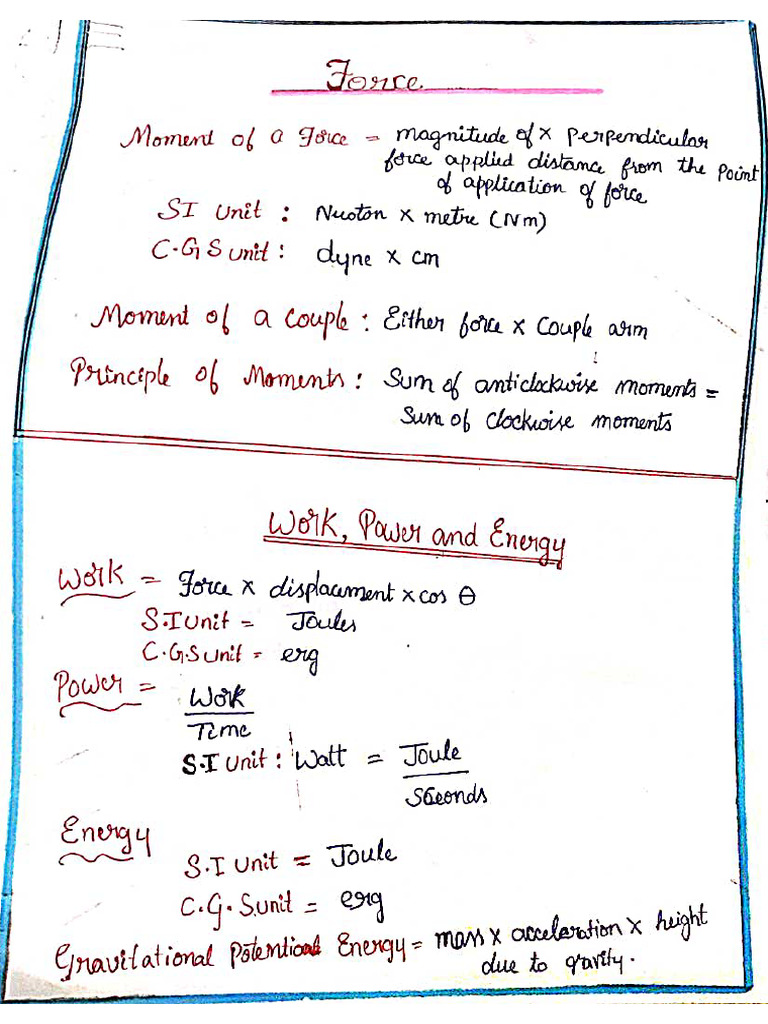 Force
Moment of a Force = magnitude of x perpendicular
force applied distance from the point
of application of force
SI Unit : Nuoton x metre (Nm)
C.G S unit : dyne x cm
Moment of a Couple : Either force x Couple arm
Principle of Moments : Sum of anticlockwise moments =
Sum of clockwise moments
Work, Power and Energy
Work = Force x displacement x cos θ
S.I Unit = Joules
C.G.S unit = erg
Power = Work
Time
S.I Unit : Watt = Joule
Seconds
Energy
S.I Unit = Joule
C.G.S.unit = erg
Gravitational Potential Energy = mass x acceleration x height
due to gravity.